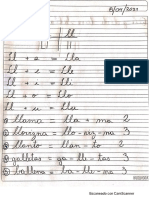 Ll ll
Ll + a = Lla
Ll + e = Lle
Ll + i = Lli
Ll + o = Llo
Ll + u = Llu
llama = lla - ma 2
llovizna = llo - viz - na 3
llanto = llan - to 2
galletas = ga - lle - tas 3
ballena = ba - lle - na 3
Escaneado con CamScanner